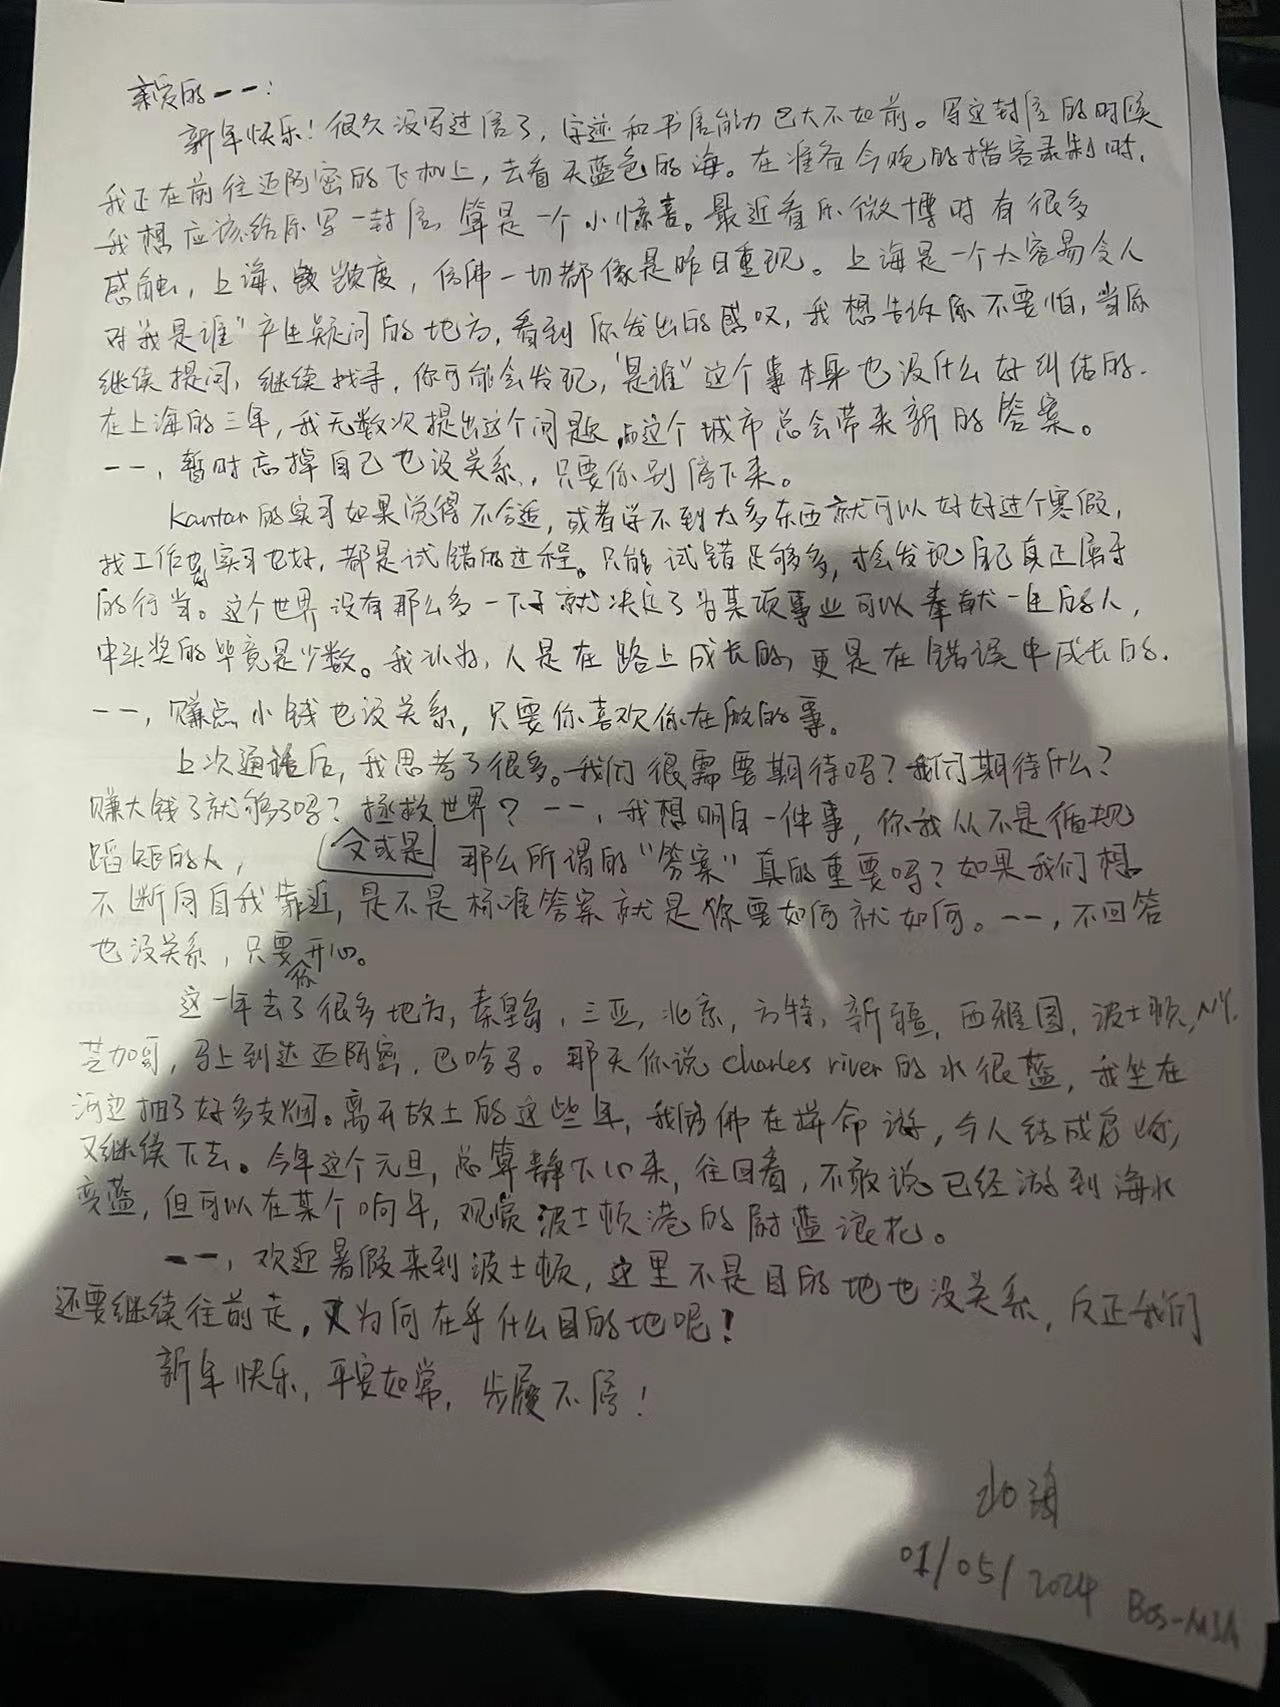 亲爱的一一：
新年快乐！很久没写过信了，字迹和书写能力已大不如前。写这封信的时候
我正在前往迈阿密的飞机上，去看天蓝色的海。在准备今晚的播客录制时，
我想应该给你写一封信，算是一个小惊喜。最近看你微博时有很多
感触，上海、颗粒度，仿佛一切都像是昨日重现。上海是一个太容易令人
对“我是谁”产生疑问的地方，看到你发出的感叹，我想告诉你不要怕，当你
继续提问，继续找寻，你可能会发现，“是谁”这个事本身也没什么好纠结的。
在上海的三年，我无数次提出这个问题，而这个城市总会带来新的答案。
一一，暂时忘掉自己也没关系，只要你别停下来。
Kantar的实习如果觉得不合适，或者学不到太多东西就可以好好过个寒假，
找工作也好实习也好，都是试错的过程。只能试错足够多，才会发现自己真正属于
的行当。这个世界没有那么多一下子就决定了为某项事业可以奉献一生的人，
中头奖的毕竟是少数。我认为，人是在路上成长的，更是在错误中成长的。
一一，赚点小钱也没关系，只要你喜欢你在做的事。
上次通话后，我思考了很多。我们很需要期待吗？我们期待什么？
赚大钱了就够了吗？拯救世界？一一，我想明白一件事，你我从不是循规
蹈矩的人，又或是 那么所谓的“答案”真的重要吗？如果我们想
不断向自我靠近，是不是标准答案就是你要如何就如何。一一，不回答
也没关系，只要你开心。
这一年去了很多地方，秦皇岛，三亚，北京，方特，新疆，西雅图，波士顿，NY，
芝加哥，马上到达迈阿密，巴哈马。那天你说charles river的水很蓝，我坐在
河边抽了好多支烟。离开故土的这些年，我仿佛在拼命游，令人结成
又继续下去。今年这个元旦，总算静下心来，往回看，不敢说已经游到海水
变蓝，但可以在某个晌午，观赏波士顿港的蔚蓝浪花。
一一，欢迎暑假来到波士顿，这里不是目的地也没关系，反正我们
还要继续往前走，又为何在乎什么目的地呢！
新年快乐，平安如常，步履不停！
01/05/2024 BOS-MIA